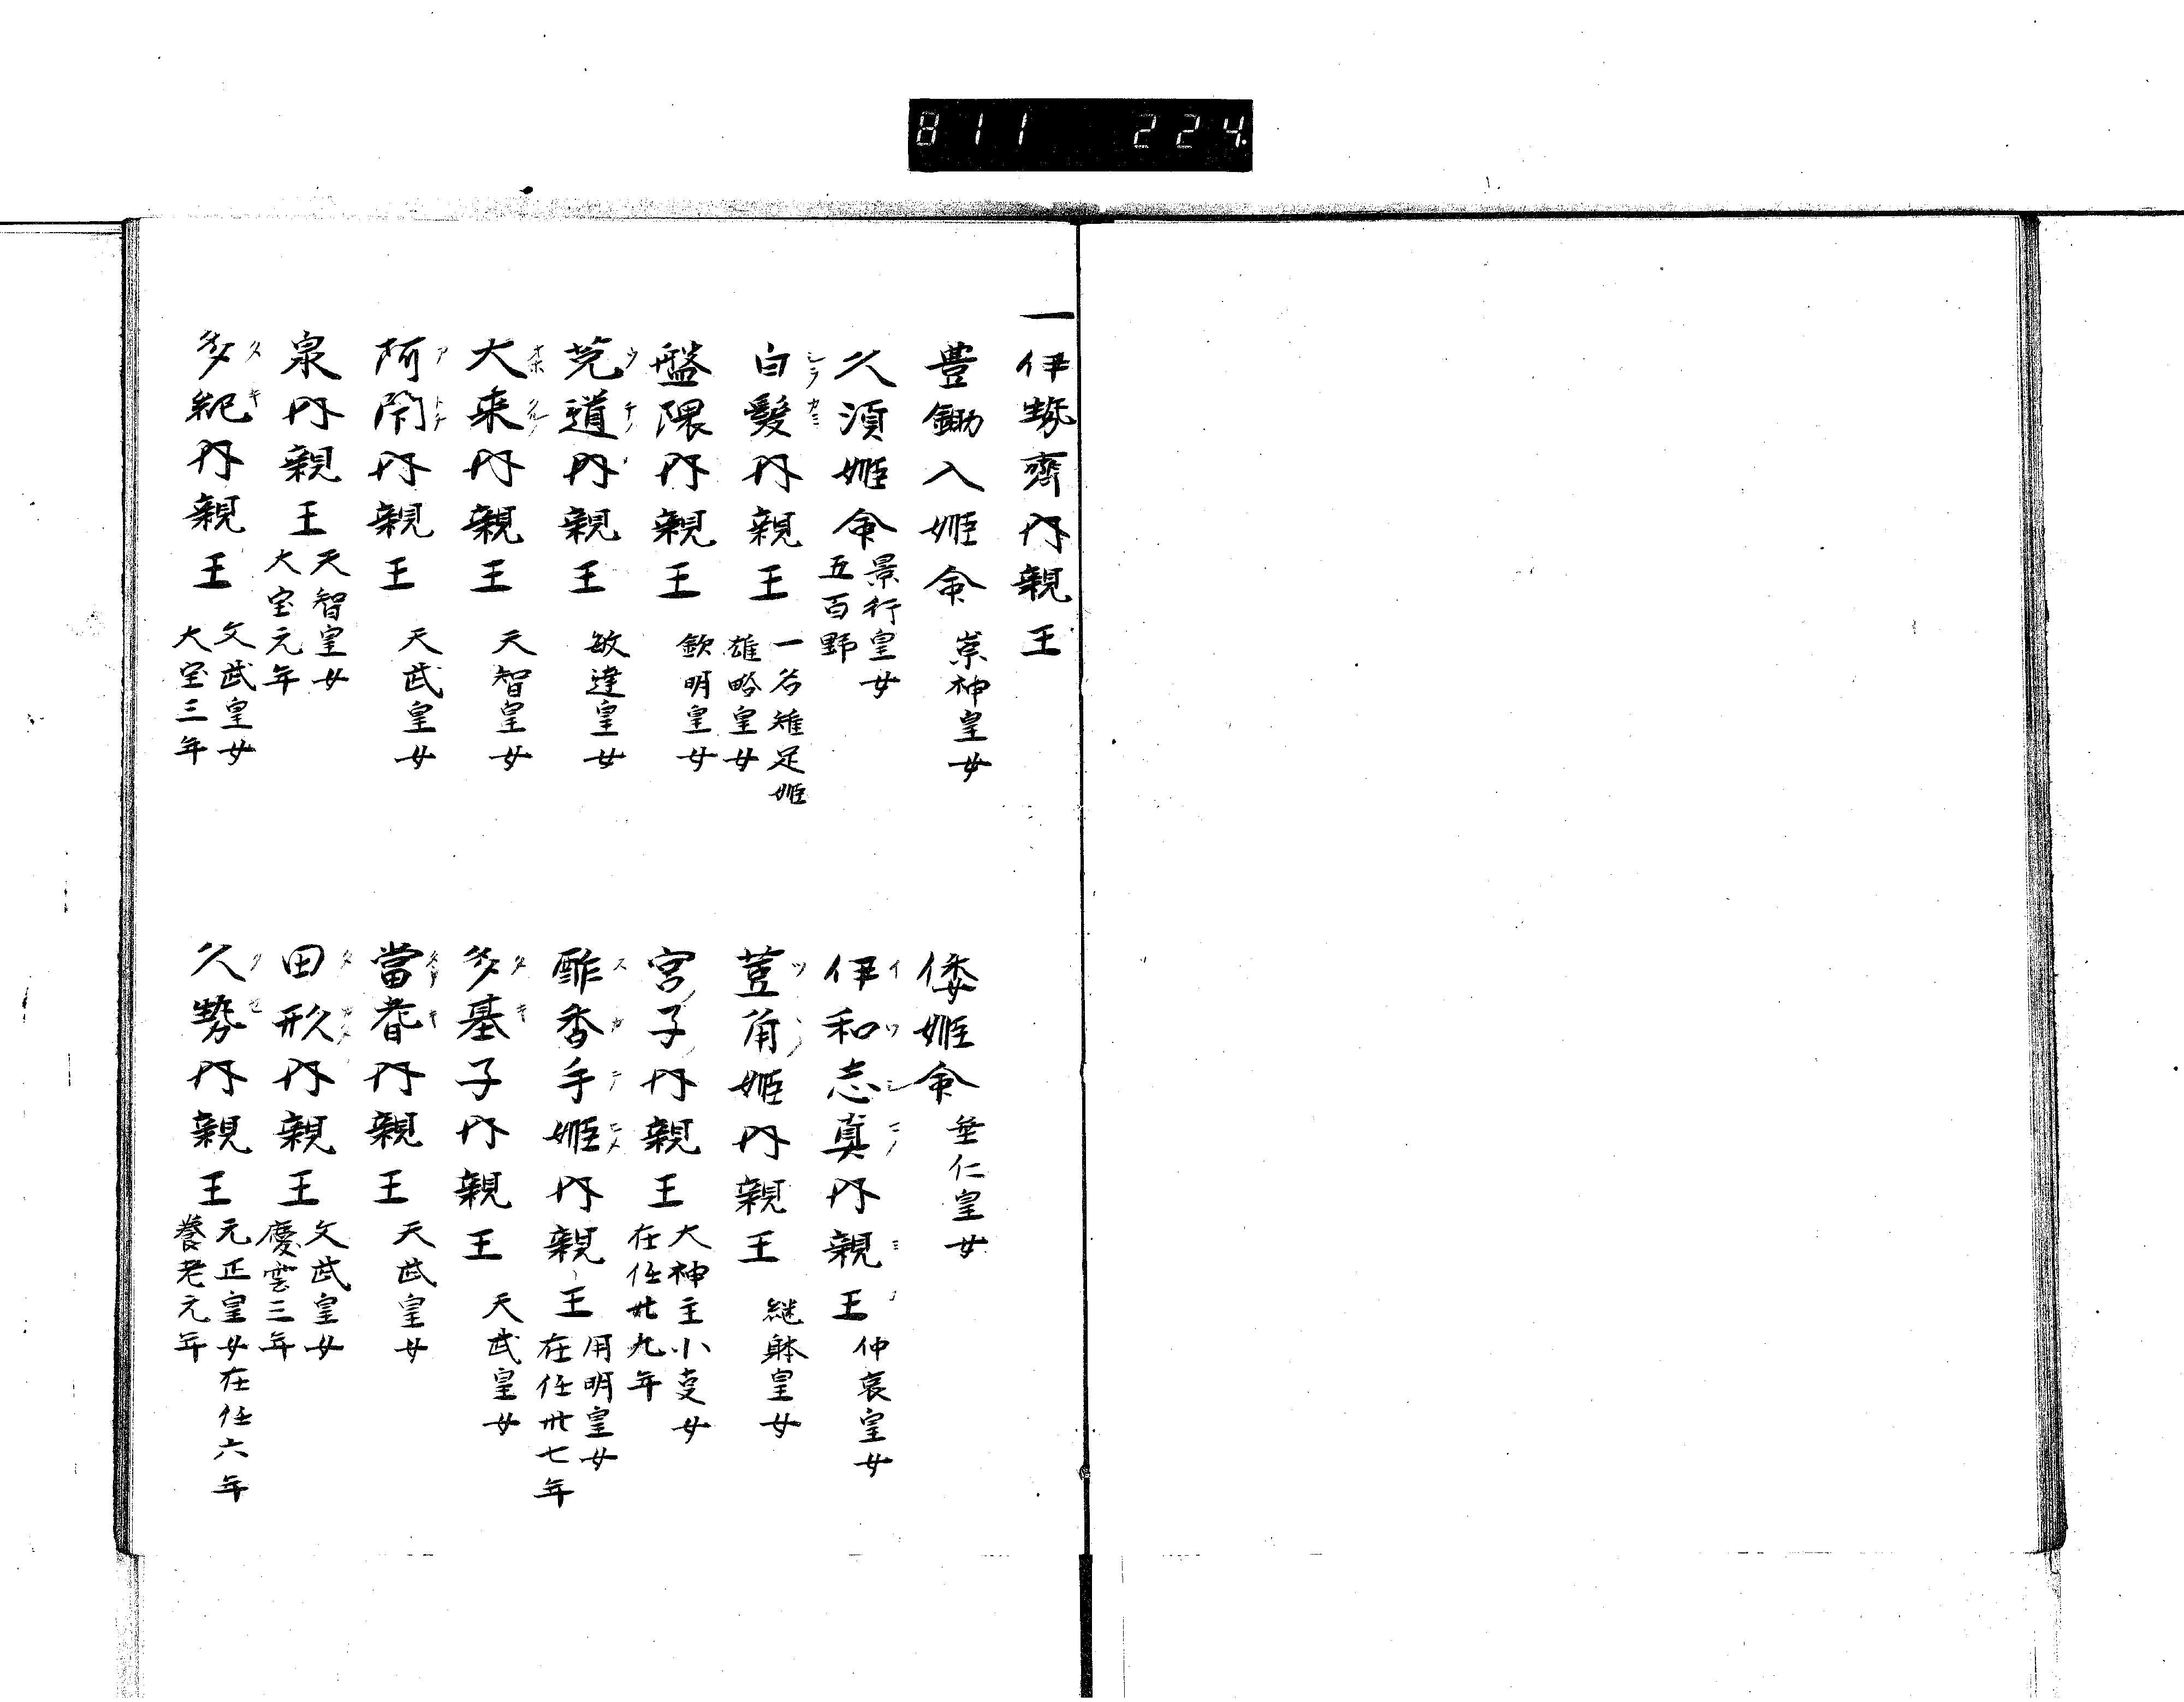 811 224
一伊勢齊内親王
豊鋤入姫命 崇神皇女
倭姫命 垂仁皇女
久須姫命 景行皇女
五百野
伊和志真内親王 仲哀皇女
イワシマノ
白髪内親王 一名雉足姫
雄略皇女
シラカミ
荳角姫内親王 継躰皇女
盤隈内親王 欽明皇女
宮子内親王 大神主小㕝女
在任廿九年
菟道内親王 敏達皇女
ウチノ
酢香手姫内親王 用明皇女
在任卅七年
スカテヒメ
大来内親王 天智皇女
オホクルノ
多基子内親王 天武皇女
タキ
阿閇内親王 天武皇女
當耆内親王 天武皇女
泉内親王 天智皇女
大宝元年
田形内親王 文武皇女
慶雲三年
タカタ
多紀内親王 文武皇女
大宝三年
タキ
久勢内親王 元正皇女在任六年
養老元年
クセ